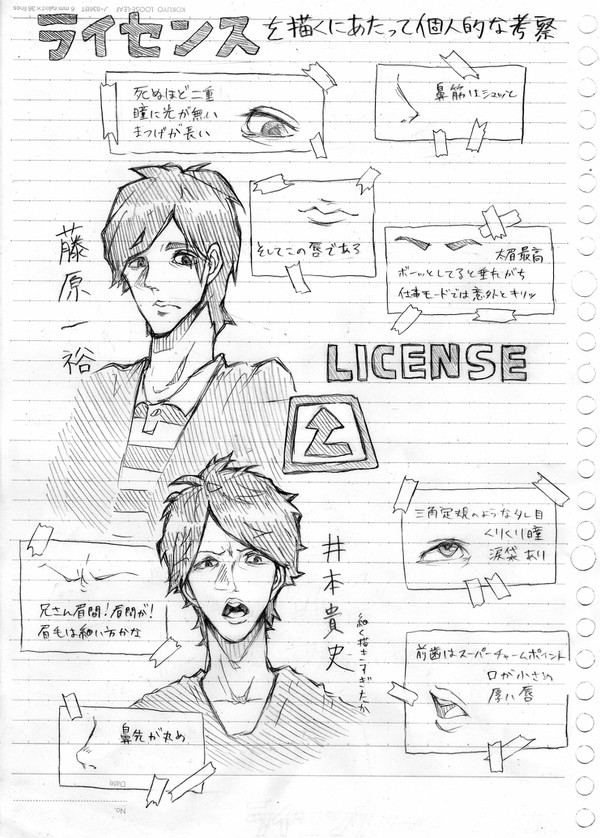 ライセンスを描くにあたって個人的な考察
死ぬほど二重
瞳に光が無い
まつげが長い
鼻筋はシュッと
藤原一裕
そしてこの唇である
太眉最高
ボーッとしてると垂れがち
仕事モードでは意外とキリッ
LICENSE
井本貴史
細く描きすぎたか
三角定規のようなタレ目
くりくり瞳
涙袋あり
兄さん眉間!眉間が!
眉毛は細い方かな
前歯はスーパーチャームポイント
口が小さめ
厚い唇
鼻先が丸め
Date
No.